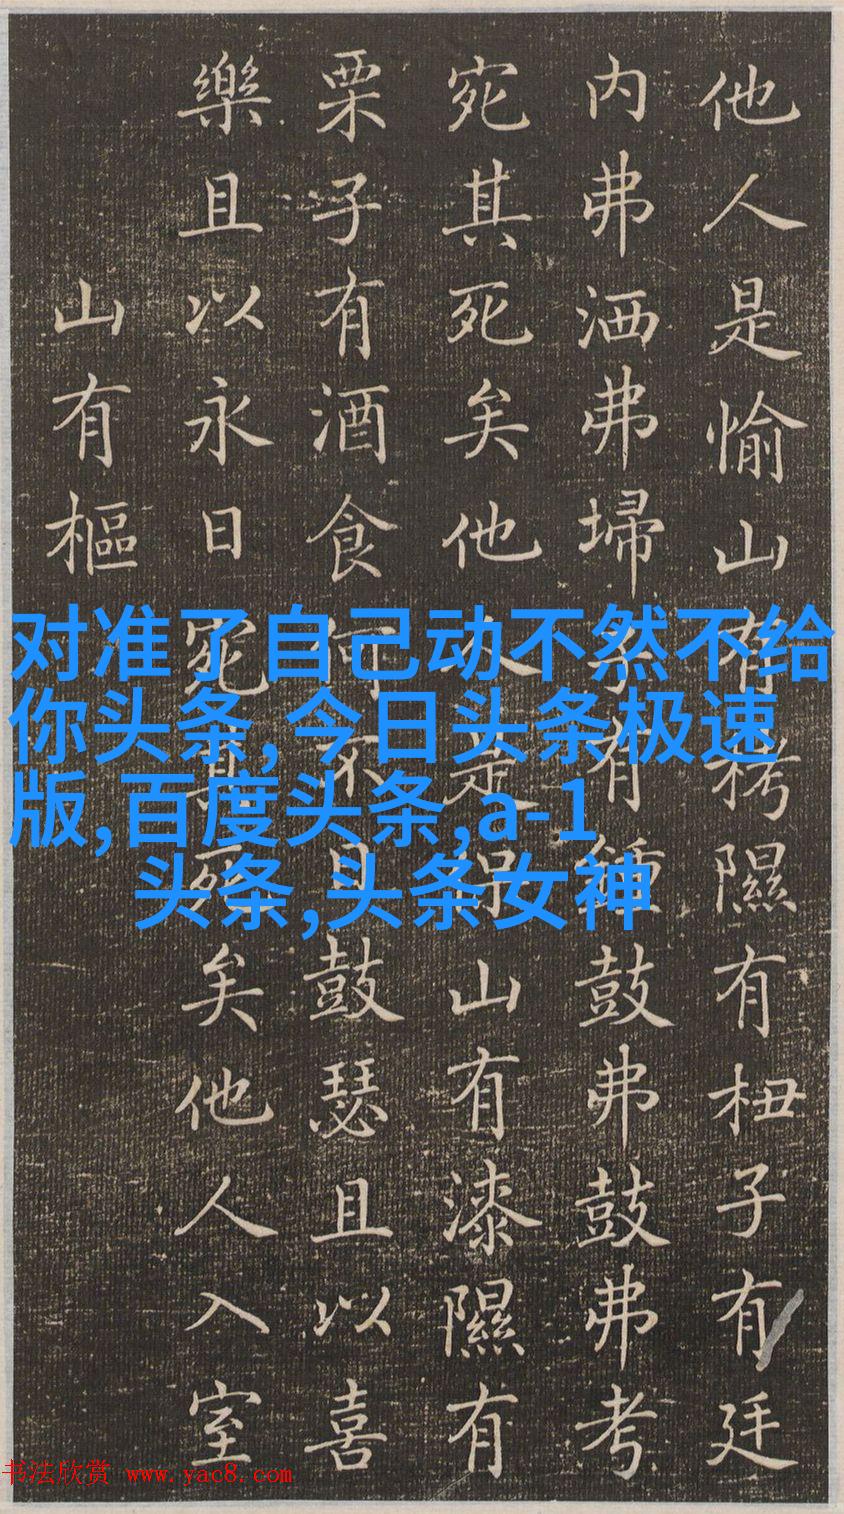 他人是愉山有栲隰有杻子有廷
内弗洒弗埽子有鍾鼓弗鼓弗考
宛其死矣他人是保山有漆隰有
栗子有酒食何不日鼓瑟且以喜
樂且以永日宛其死矣他人入室
山有樞
对准了自己动不然不给
你头条,今日头条极速
版,百度头条,a-1
头条,头条女神
书法欣赏 www.yac8.com